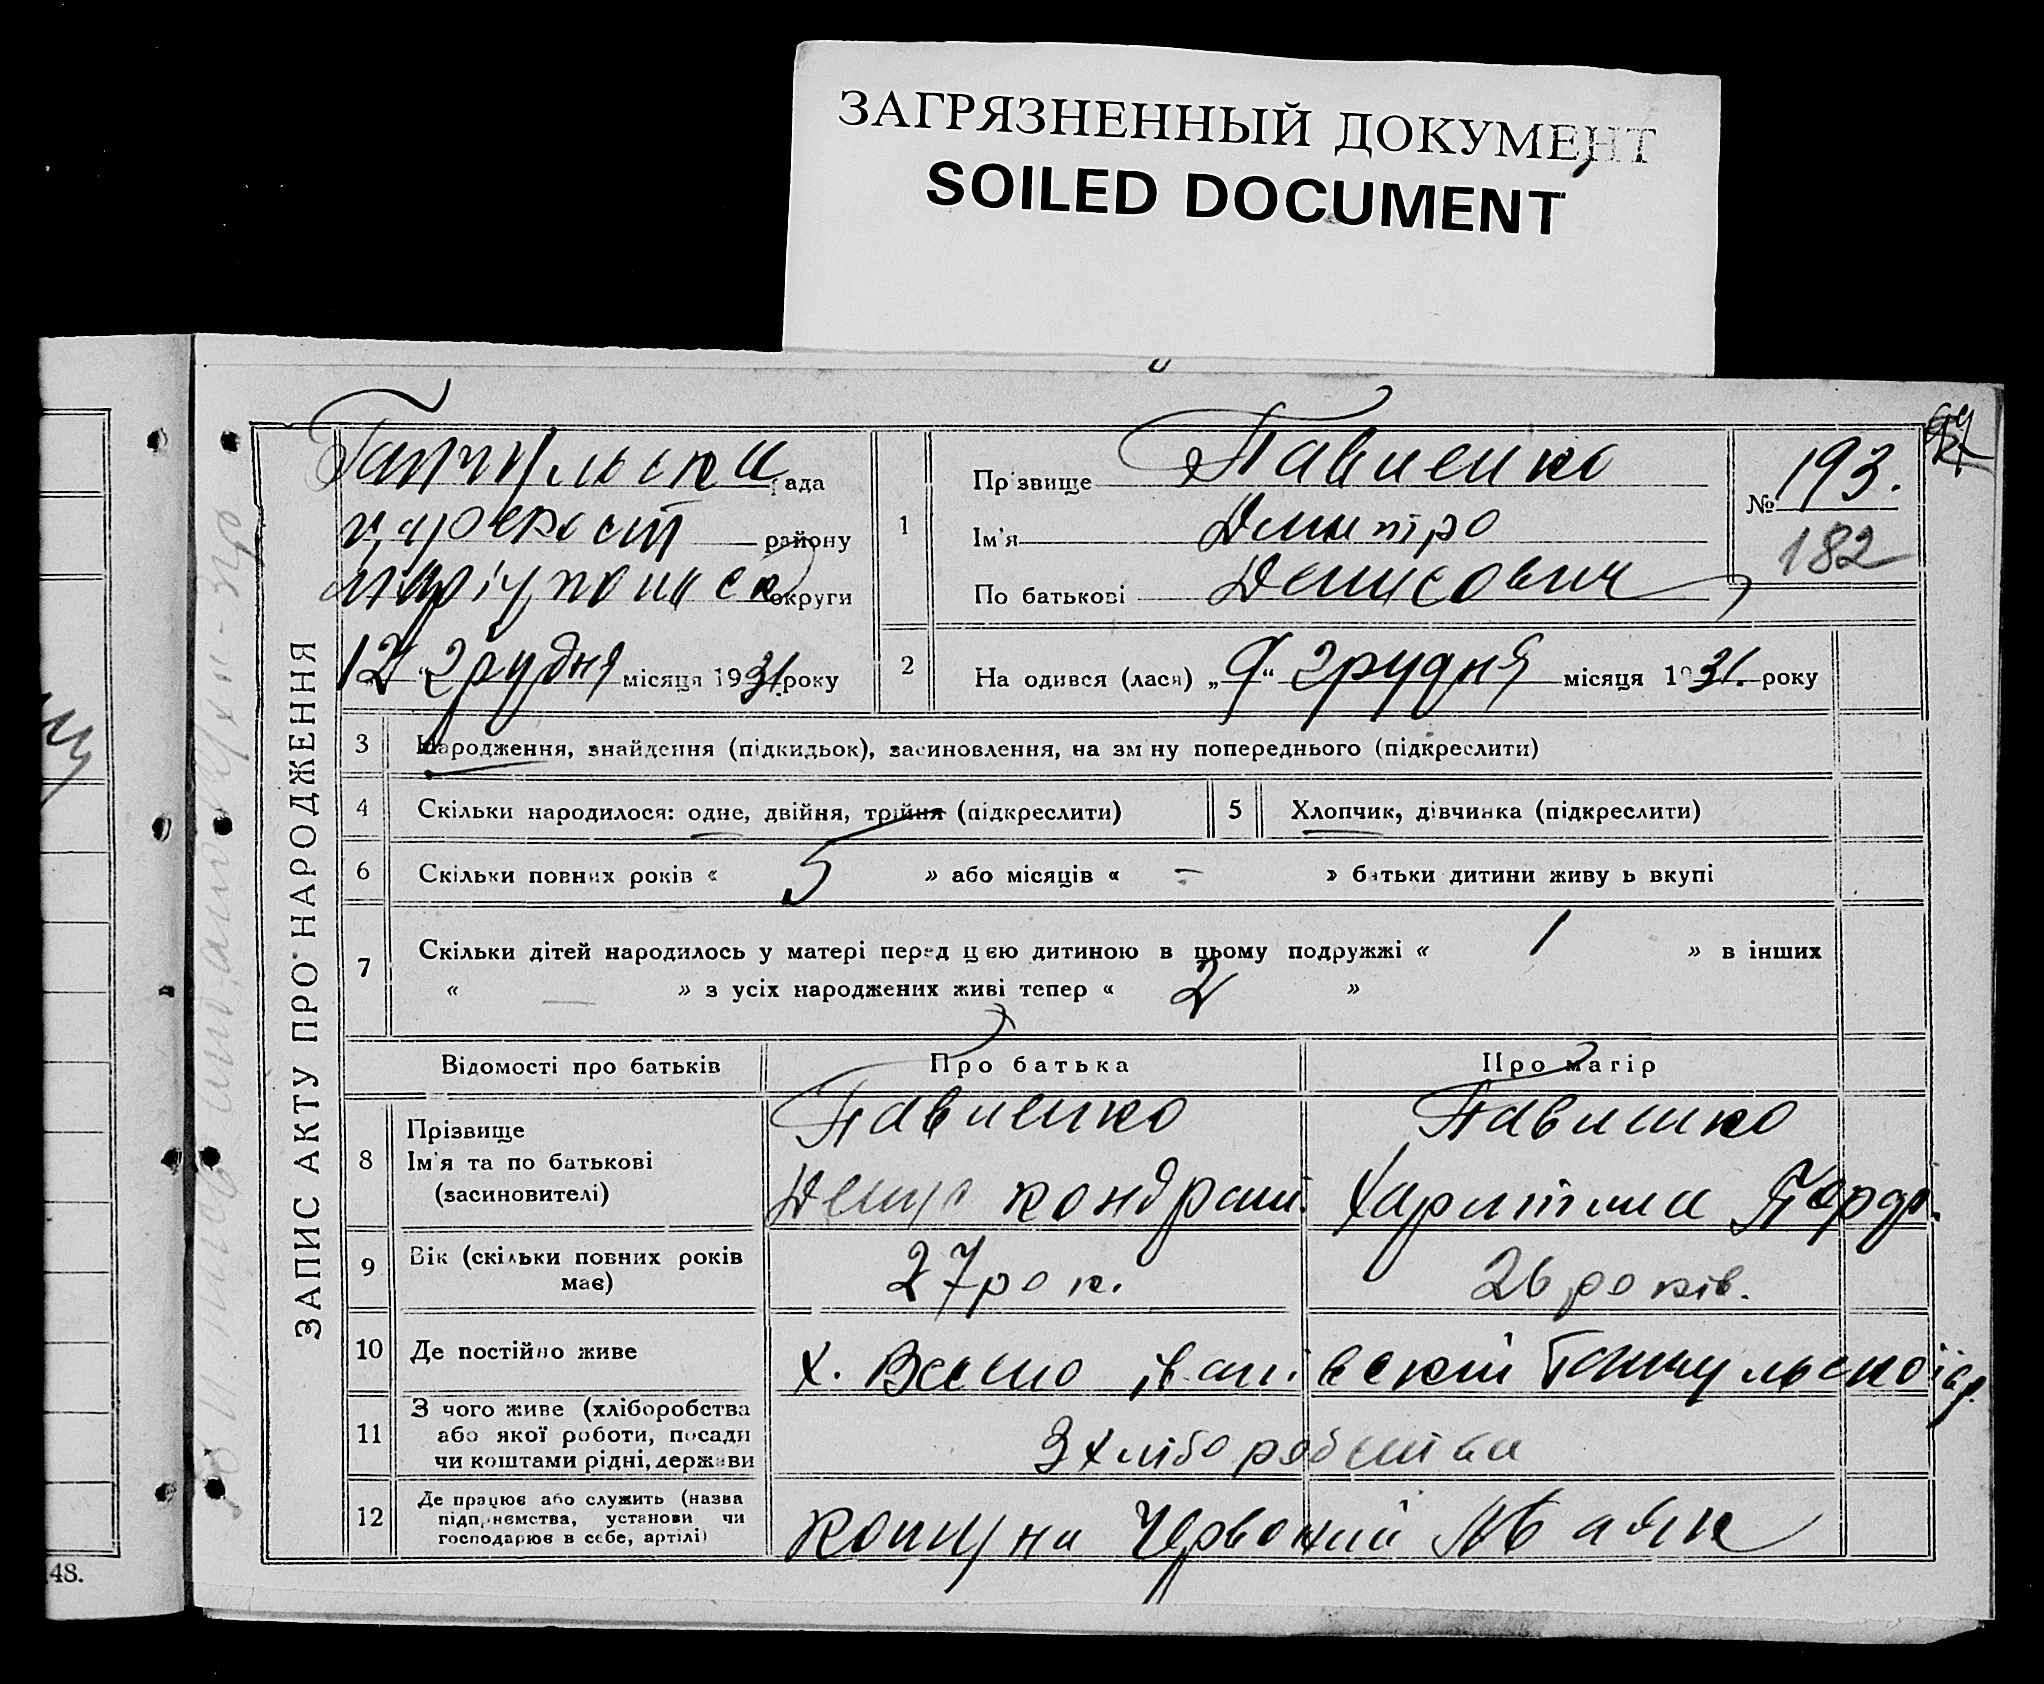 ЗАГРЯЗНЕННЫЙ ДОКУМЕНТ
SOILED DOCUMENT
ЗАПИС АКТУ ПРО НАРОДЖЕННЯ
рада
району
округи
12 грудня місяця 1931 року
1
Прізвище Павленко
Ім'я Дмитро
По батькові Денисович
№ 193.
182
2
На одився (лася) „9“ грудня місяця 1931. року
3
Народження, знайдення (підкидьок), засиновлення, на зміну попереднього (підкреслити)
4
Скільки народилося: одне, двійня, трійня (підкреслити)
5
Хлопчик, дівчинка (підкреслити)
6
Скільки повних років « 5 » або місяців « – » батьки дитини живу ь вкупі
7
Скільки дітей народилось у матері перед цією дитиною в цьому подружжі « 1 » в інших
« — » з усіх народжених живі тепер « 2 »
Відомості про батьків
Про батька
Про матір
8
Прізвище
Ім'я та по батькові
(засиновителі)
Павленко
Денис Кондрат.
Павленко
Харитина
9
Вік (скільки повних років
має)
27 рок.
26 років.
10
Де постійно живе
х. Весело Іванівский
11
З чого живе (хліборобства
або якої роботи, посади
чи коштами рідні, держави
З хліборобства
12
Де працює або служить (назва
підприємства, установи чи
господарює в себе, артілі)
Комуна Червоний Маяк
48.